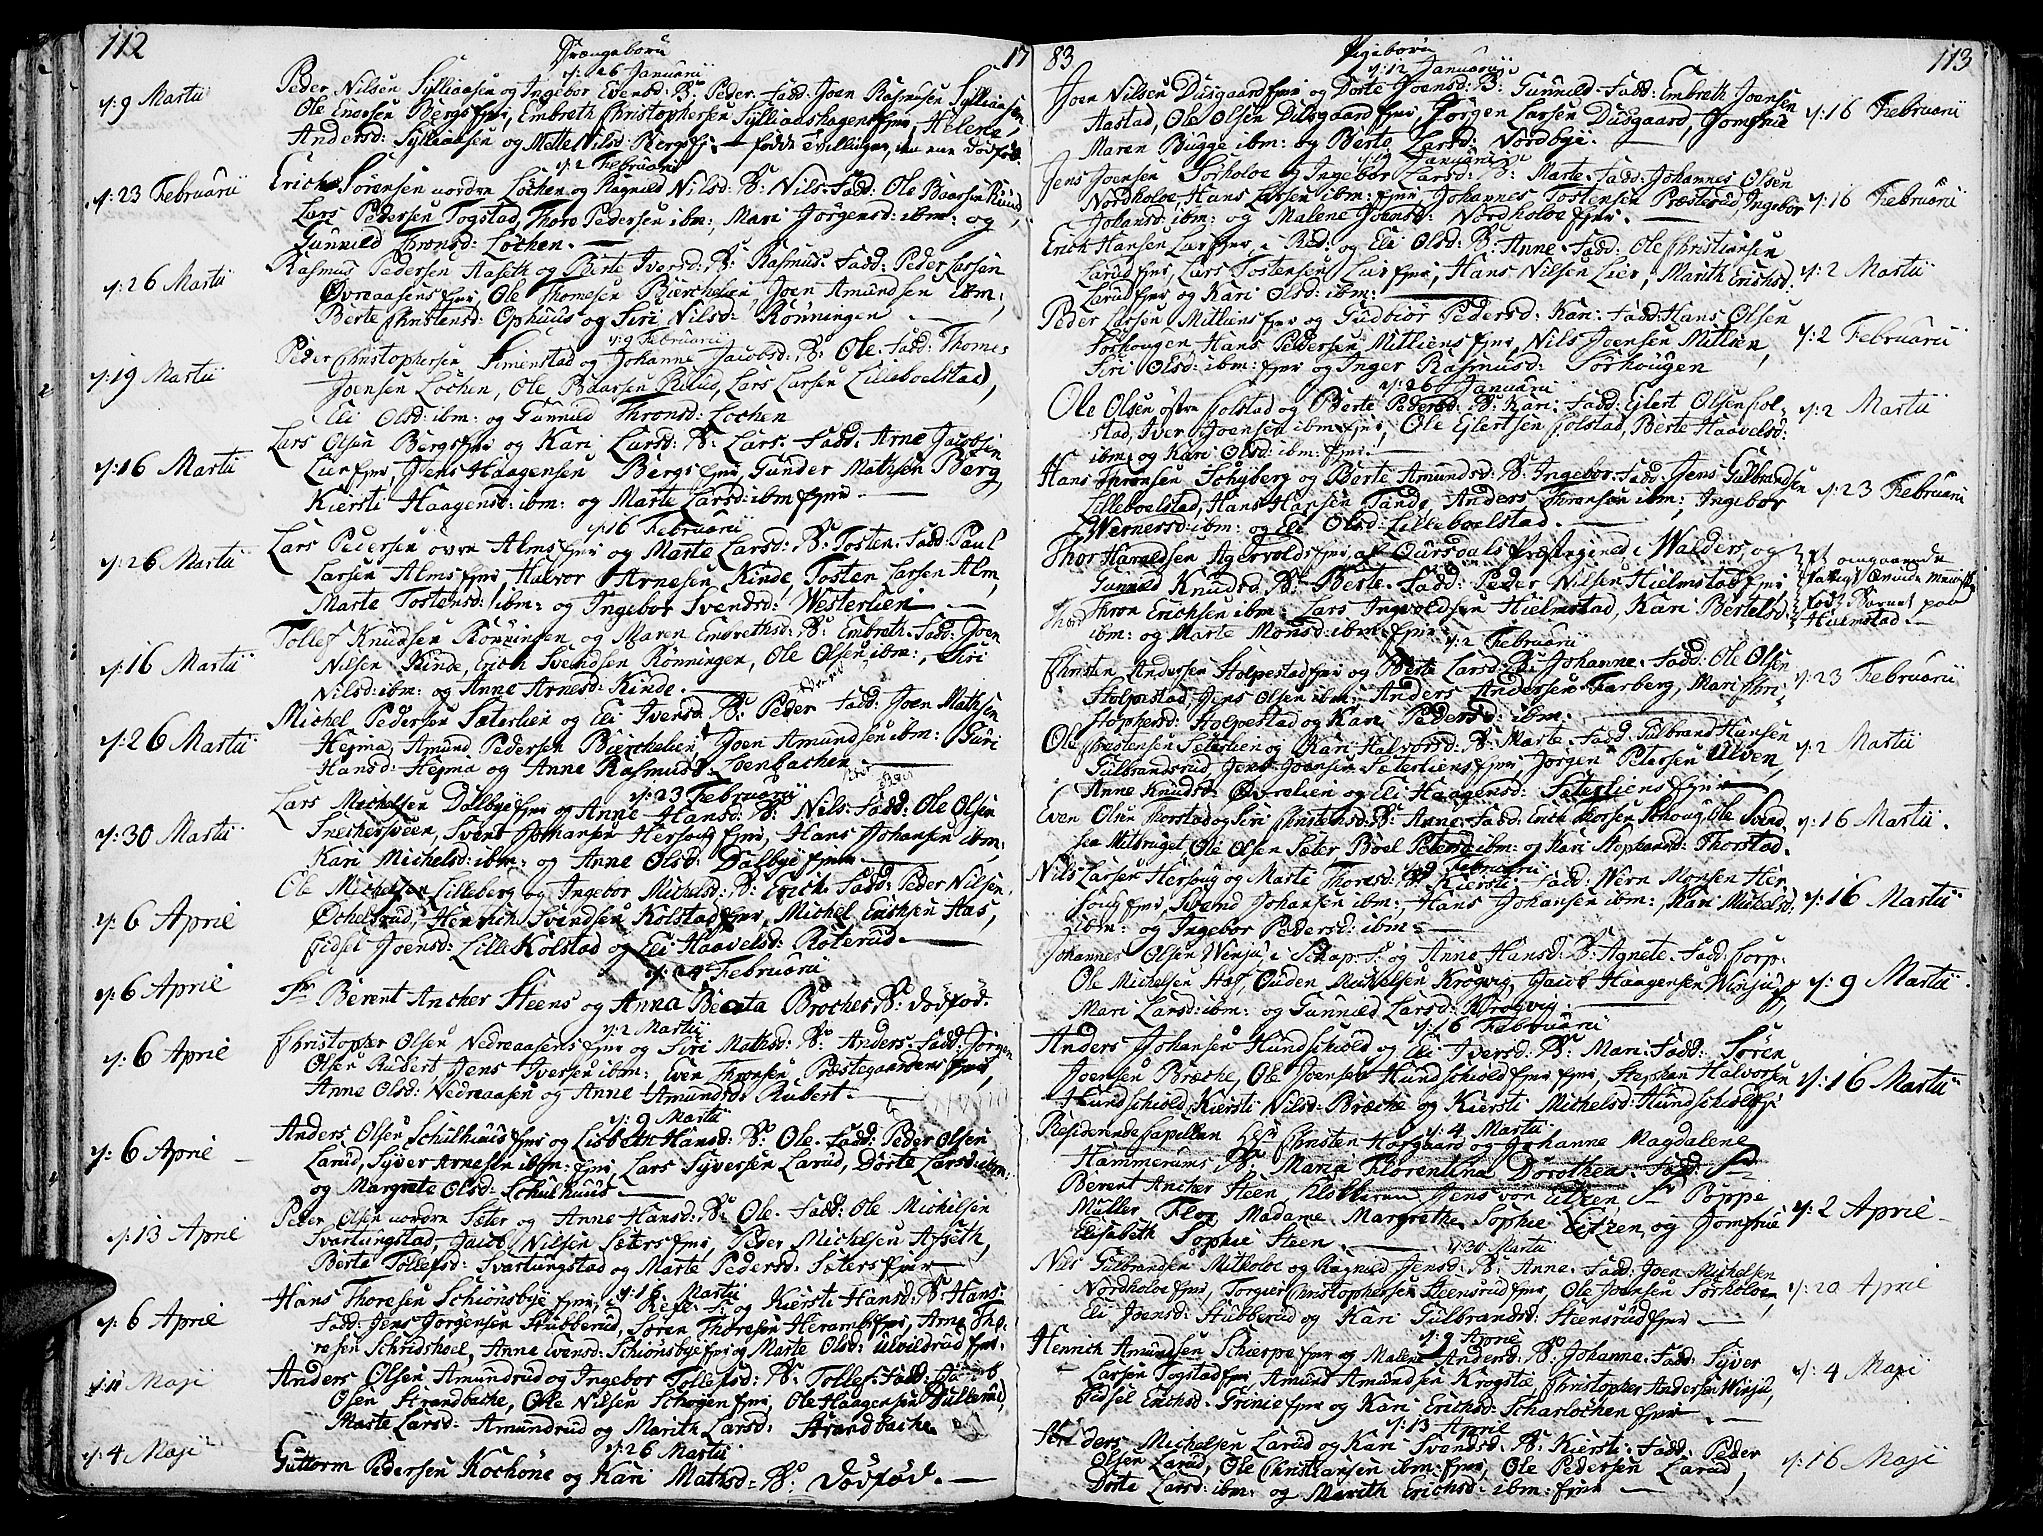 112
Drængebørn
17
d: 26 Januarii
d: 9 Martii
Peder Nilsen Sylliaasen og Ingebor Evensd: B: Peder. Fadd: Joen Rasmusen Sylliaasen
Ole Enersen Bergs fjer, Embreth Christophersen Sylliaashagens fjer, Helene
Andersd: Sylliaasen og Mette Nilsd: Bergs fj: fødte Tvillinger, den ene dødfød.
d: 2 Februarii
d: 23 Februarii
Erich Sørensen nordre Løchen og Ragnild Nilsd: B: Nils. Fadd: Ole Baarsen Ruud,
Lars Pedersen Togstad, Thore Pedersen ibm: Mari Jørgensd: ibm: og
Gunnild Thronsd: Løchen.
d: 26 Martii
Rasmus Pedersen Haseth og Berte Iversd: B: Rasmus. Fadd: Peder Larsen
Øvreaasens fjer, Ole Thomesen Bierchelien Joen Amundsen ibm:
Berte Christensd: Ophuus og Siri Nilsd: Rønningen
d: 9 Februarii
d: 19 Martii
Peder Christophersen Simenstad og Johanne Jacobsd: B: Ole. Fadd: Thomes
Joensen Løchen, Ole Baarsen Ruud, Lars Larsen Lilleboelstad,
Eli Olsd: ibm: og Gunnild Thronsd: Løchen
d: 16 Martii
Lars Olsen Bergs fjer og Kari Larsd: B: Lars. Fadd: Arne Jacobsen
Lier fjer, Jens Haagensen Bergs fjer, Gunder Mathsen Berg
Kiersti Haagensd: ibm: og Marte Larsd: ibm fjer.
d: 16 Februarii
d: 26 Martii
Lars Pedersen øvre Alms fjer og Marte Larsd: B: Tosten. Fadd: Paul
Larsen Alms fjer, Halvor Arnesen Kinde, Tosten Larsen Alm,
Marte Tostensd: ibm: og Ingebor Svendsd: Westerlien
d: 16 Martii
Tollef Knudsen Rønningen og Maren Embrethsd: B: Embreth. Fadd: Joen
Nilsen Kinde, Erich Svendsen Rønningen, Ole Olsen ibm:, Siri
Nilsd: ibm: og Anne Arnesd: Kinde.
d: 26 Martii
Michel Pedersen Sæterlien og Eli Iversd: B: Peder Fadd: Joen Mathsen
Hejma, Amund Pedersen Bierchelien, Joen Amundsen ibm: Guri
Hansd: Hejma og Anne Rasmusd: Evenbachen
d: 23 Februarii
d: 30 Martii
Lars Michelsen Dalbye fjer og Anne Hansd: B: Nils. Fadd: Ole Olsen
Snechersveen, Svent Johansen Hersoug fjer, Hans Johansen ibm:,
Kari Michelsd: ibm: og Anne Olsd: Dalbye fjer
d: 6 April
Ole Michelsen Lilleberg og Ingebor Michelsd: B: Erich. Fadd: Peder Nilsen
Øchelsrud, Henrich Svendsen Kolstad fjer, Michel Erichsen Aas,
Sidsel Joensd: Lille Kolstad og Eli Haavelsd: Roterud.
d: 24 Februarii
d: 6 April
Sr Berent Ancher Steens og Anna Beata Broches B: Dødfød.
d: 2 Martii
d: 6 April
Christopher Olsen Nedreaasens fjer og Siri Mathsd: B: Anders. Fadd: Jørgen
Olsen Rubert, Jens Iversen ibm: Even Thronsen Præstegaardens fjer,
Anne Olsd: Nedreaasen og Anne Amundsd: Rubert.
d: 9 Martii
d: 6 April
Anders Olsen Schulhuus fjer og Lisbeth Hansd: B: Ole. Fadd: Peder Olsen
Larud, Syver Arnesen ibm: fjer, Lars Syversen Larud, Dorte Larsd: ibm:
og Margrete Olsd: Schulhuus.
d: 13 April
Peder Olsen nordre Seter og Anne Hansd: B: Ole. Fadd: Ole Michelsen
Svartungstad, Jacob Nilsen Seters fjer, Peder Michelsen Afseth,
Berte Tollefsd: Svartungstad og Marte Pedersd: Sæters fjer
d: 16 Martii
d: 6 April
Hans Thoresen Schionsbye fjer, i Reb: S: og Kiersti Hansd: B: Hans.
Fadd: Jens Jørgensen Stubberud, Søren Thoresen Heramb fjer, Arne Tho-
resen Schridshoel, Anne Evensd: Schionsbye fjer og Marte Olsd: Ulvildsrud fjer.
d: 11 Maji
Anders Olsen Amundrud og Ingebor Tollefsd: B: Tollef. Fadd: Jacob
Olsen Strandbache, Ole Nilsen Schogen fjer, Ole Haagensen Dillerud,
Marte Larsd: Amundrud og Marith Larsd: Strandbache
d: 26 Martii
d: 4 Maji
Guttorm Pedersen Kochone og Kari Mathsd: B: Dødfød.
83
Pigebørn
113
d: 12 Januarii
Joen Nilsen Dusgaard fjer og Dorte Joensd: B: Gunnild. Fadd: Embreth Joensen
Aastad, Ole Olsen Dusgaard fjer, Jørgen Larsen Dusgaard, Jomfrue
Maren Bugge ibm: og Berte Larsd: Nordbye.
d: 16 Februarii
d: 19 Januarii
Jens Joensen Sørholoe og Ingebor Larsd: B: Marte. Fadd: Johannes Olsen
Nordholoe, Hans Larsen ibm: fjer Johannes Tostensen Præsterud, Ingebor
Johansd: ibm: og Malene Joensd: Nordholoe fjer.
d: 16 Februarii
Erich Hansen Lier fjer i Red: og Eli Olsd: B: Anne. Fadd: Ole Christiansen
Larud fjer, Lars Tostensen Lier fjer, Hans Nilsen Lier, Marith Erichsd:
Larud fjer og Kari Olsd: ibm:
d: 2 Martii
Peder Larsen Mitliens fjer og Gudbior Pedersd: Kari. Fadd: Hans Olsen
Sørhougen, Hans Pedersen Mitliens fjer, Nils Joensen Mitlien,
Siri Olsd: ibm: fjer og Inger Rasmusd: Sørhougen
d: 2 Februarii
d: 26 Januarii
Ole Olsen østre Holstad og Berte Pedersd: B: Kari. Fadd: Ejlert Olsen Hol-
stad, Iver Joensen ibm: fjer, Ole Ejlertsen Holstad, Berte Haavelsd:
ibm: og Kari Olsd: ibm: fjer.
d: 2 Martii
Hans Thronsen Schyberg og Berte Amundsd: B: Ingebor. Fadd: Jens Gulbrandsen
Lilleboelstad, Hans Hansen Tande, Anders Thronsen ibm:, Ingebor
Wernersd: ibm: og Eli Olsd: Lilleboelstad.
d: 23 Februarii
Thor Haraldsen Agervolds fjer af Ourdals Præstegield i Walders og
Gunnild Knudsd: B: Berte. Fadd: Peder Nilsen Hielmstad fjer
Thron Erichsen ibm: Lars Ingvoldsen Hielmstad, Kari Bertelsd:
ibm: og Marte Monsd: ibm: fjer
et omgaaende
fattigt Qvinde Menniske
fød Barnet paa
Hielmstad.
d: 2 Februarii
Christen Andersen Holpestad fjer og Berte Larsd: B: Johanne. Fadd: Ole Olsen
Holpestad, Jens Olsen ibm: Anders Andersen Farberg, Mari Chri-
stophersd: Holpestad og Kari Pedersd: ibm:
d: 23 Februarii
Ole Christensen Sæterlien og Kari Halvorsd: B: Marte. Fadd: Gulbrand Hansen
Gulbrandsrud, Jens Joensen Sæterliens fjer, Jørgen Petersen Ulven,
Anne Knudsd: Øvrelien og Eli Haagensd: Sæterliens fjer
d: 2 Martii
Even Olsen Thorstad og Siri Christensd: B: Anne. Fadd: Erich Thorsen Schoug, Ole Svend-
sen Mitbruget Ole Olsen Seter Boel Petersd: ibm: og Kari Stephansd: Thorstad.
d: 16 Martii
d: 9 Februarii
Nils Larsen Hersoug og Marte Thoresd: B: Kiersti. Fadd: Wern Monsen Her-
soug fjer, Svend Johansen ibm:, Hans Johansen ibm:, Kari Michelsd:
ibm: og Ingebor Pedersd: ibm:
d: 16 Martii
Johannes Olsen Winju i Schap. S: og Anne Hansd: B: Agnete. Fadd: Corp.
Ole Michelsen Aas, Ouden Michelsen Krogvig, Jacob Haagensen Winju,
Mari Larsd: ibm: og Gunnild Larsd: Krogvig.
d: 9 Martii
d: 16 Februarii
Anders Johansen Hundschiold og Eli Iversd: B: Mari. Fadd: Søren
Joensen Bræche, Ole Joensen Hundschiold fjer, Stephan Halvorsen
Hundschiold, Kiersti Nilsd: Bræche og Kiersti Michelsd: Hundschiold fj
d: 16 Martii
d: 4 Martii
Residerende Capellan Hr Christen Hofgaard og Johanne Magdalene
Hammerums B: Maria Florentina Dorothea. Fadd: Sr
Berent Ancher Steen, Klokkeren Jens von Eitzen Sr Poppe
Müller, Flor Madame Margrethe Sophie Eitzen og Jomfrue
Elisabeth Sophie Steen.
d: 2 April
d: 30 Martii
Nils Gulbrandsen Mitholoe og Ragnild Jensd: B: Anne. Fadd: Joen Michelsen
Nordholoe fjer, Torgier Christophersen Steensrud fjer, Ole Joensen Sørholoe,
Eli Joensd: Stubberud og Kari Gulbrandsd: Steensrud fjer
d: 20 April
d: 9 April
Henrich Amundsen Schierpe fjer og Malene Andersd: B: Johanne. Fadd: Syver
Larsen Togstad fjer, Amund Amundsen Krogstæ, Christopher Andersen Winju,
Sidsel Erichsd: Grinie fjer og Kari Erichsd: Scharløchen fjer
d: 4 Maji
d: 13 April
Anders Michelsen Larud og Kari Svendsd: B: Kiersti. Fadd: Peder
Olsen Larud, Ole Christiansen ibm: fjer, Ole Pedersen Larud,
Dorte Larsd: ibm: og Marith Erichsd: ibm: fjer
d: 16 Maji